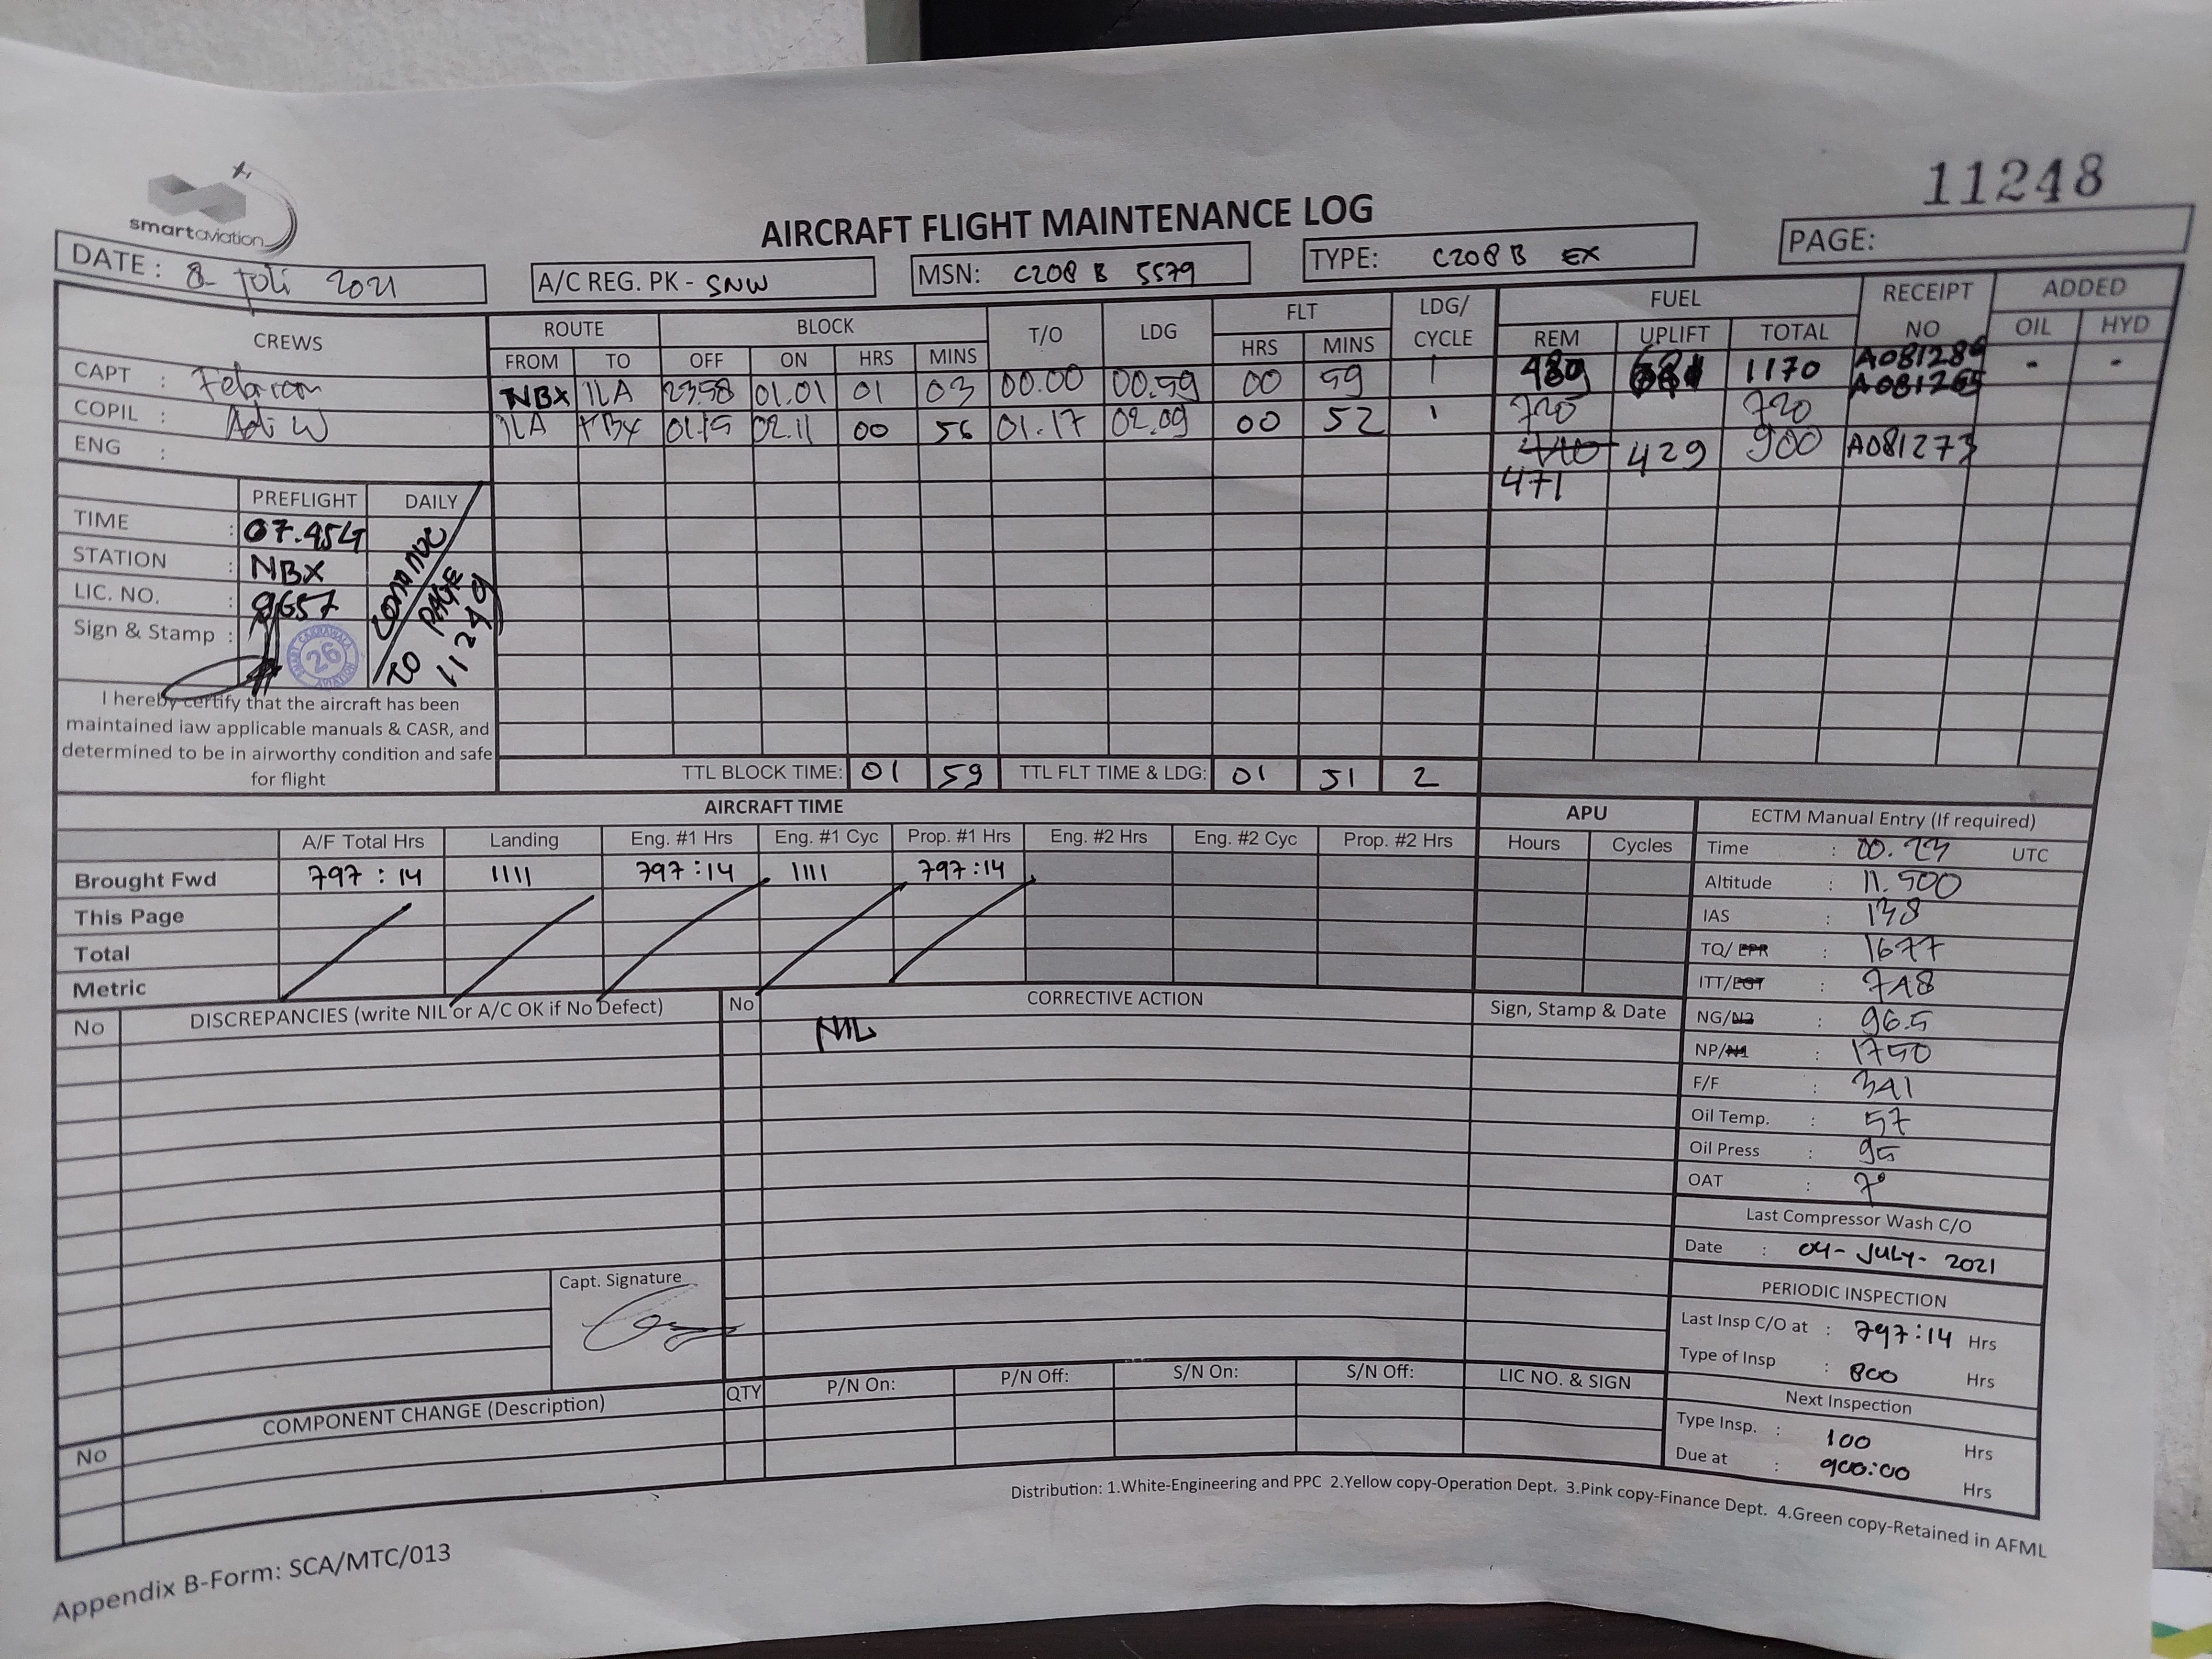 smartaviation
11248
AIRCRAFT FLIGHT MAINTENANCE LOG
DATE : 8 Juli 2021
A/C REG. PK - SNW
MSN: C208 B 5579
TYPE: C208 B EX
PAGE:
CREWS ROUTE BLOCK T/O LDG FLT LDG/ CYCLE FUEL RECEIPT NO ADDED
FROM TO OFF ON HRS MINS HRS MINS REM UPLIFT TOTAL OIL HYD
CAPT : NBX ILA 23.58 01.01 01 03 00.00 00.59 00 59 1 489 1170 - -
A081265
COPIL : Adi W ILA 01.15 02.11 00 56 01.17 02.09 00 52 1 720 720
ENG : 429 900 A081273
471
PREFLIGHT DAILY
TIME : 07.45LT
STATION : NBX
LIC. NO. : 9657
Sign & Stamp :
26
TO PAGE 11249
I hereby certify that the aircraft has been
maintained iaw applicable manuals & CASR, and
determined to be in airworthy condition and safe
for flight
TTL BLOCK TIME: 01 59 TTL FLT TIME & LDG: 01 51 2
AIRCRAFT TIME APU
A/F Total Hrs Landing Eng. #1 Hrs Eng. #1 Cyc Prop. #1 Hrs Eng. #2 Hrs Eng. #2 Cyc Prop. #2 Hrs Hours Cycles
Brought Fwd 797 : 14 1111 797 : 14 1111 797 : 14
This Page
Total
Metric
ECTM Manual Entry (If required)
Time : 00.23 UTC
Altitude : 11.500
IAS : 138
TQ/ EPR : 1677
ITT/EGT : 748
NG/N2 : 96.5
NP/N1 : 1750
F/F : 341
Oil Temp. : 57
Oil Press : 95
OAT : 7°
Last Compressor Wash C/O
Date : 04- JULY- 2021
PERIODIC INSPECTION
Last Insp C/O at : 797:14 Hrs
Type of Insp : 800 Hrs
Next Inspection
Type Insp. : 100 Hrs
Due at : 900:00 Hrs
No DISCREPANCIES (write NIL or A/C OK if No Defect) No CORRECTIVE ACTION Sign, Stamp & Date
NIL
Capt. Signature
No COMPONENT CHANGE (Description) QTY P/N On: P/N Off: S/N On: S/N Off: LIC NO. & SIGN
Distribution: 1.White-Engineering and PPC 2.Yellow copy-Operation Dept. 3.Pink copy-Finance Dept. 4.Green copy-Retained in AFML
Appendix B-Form: SCA/MTC/013